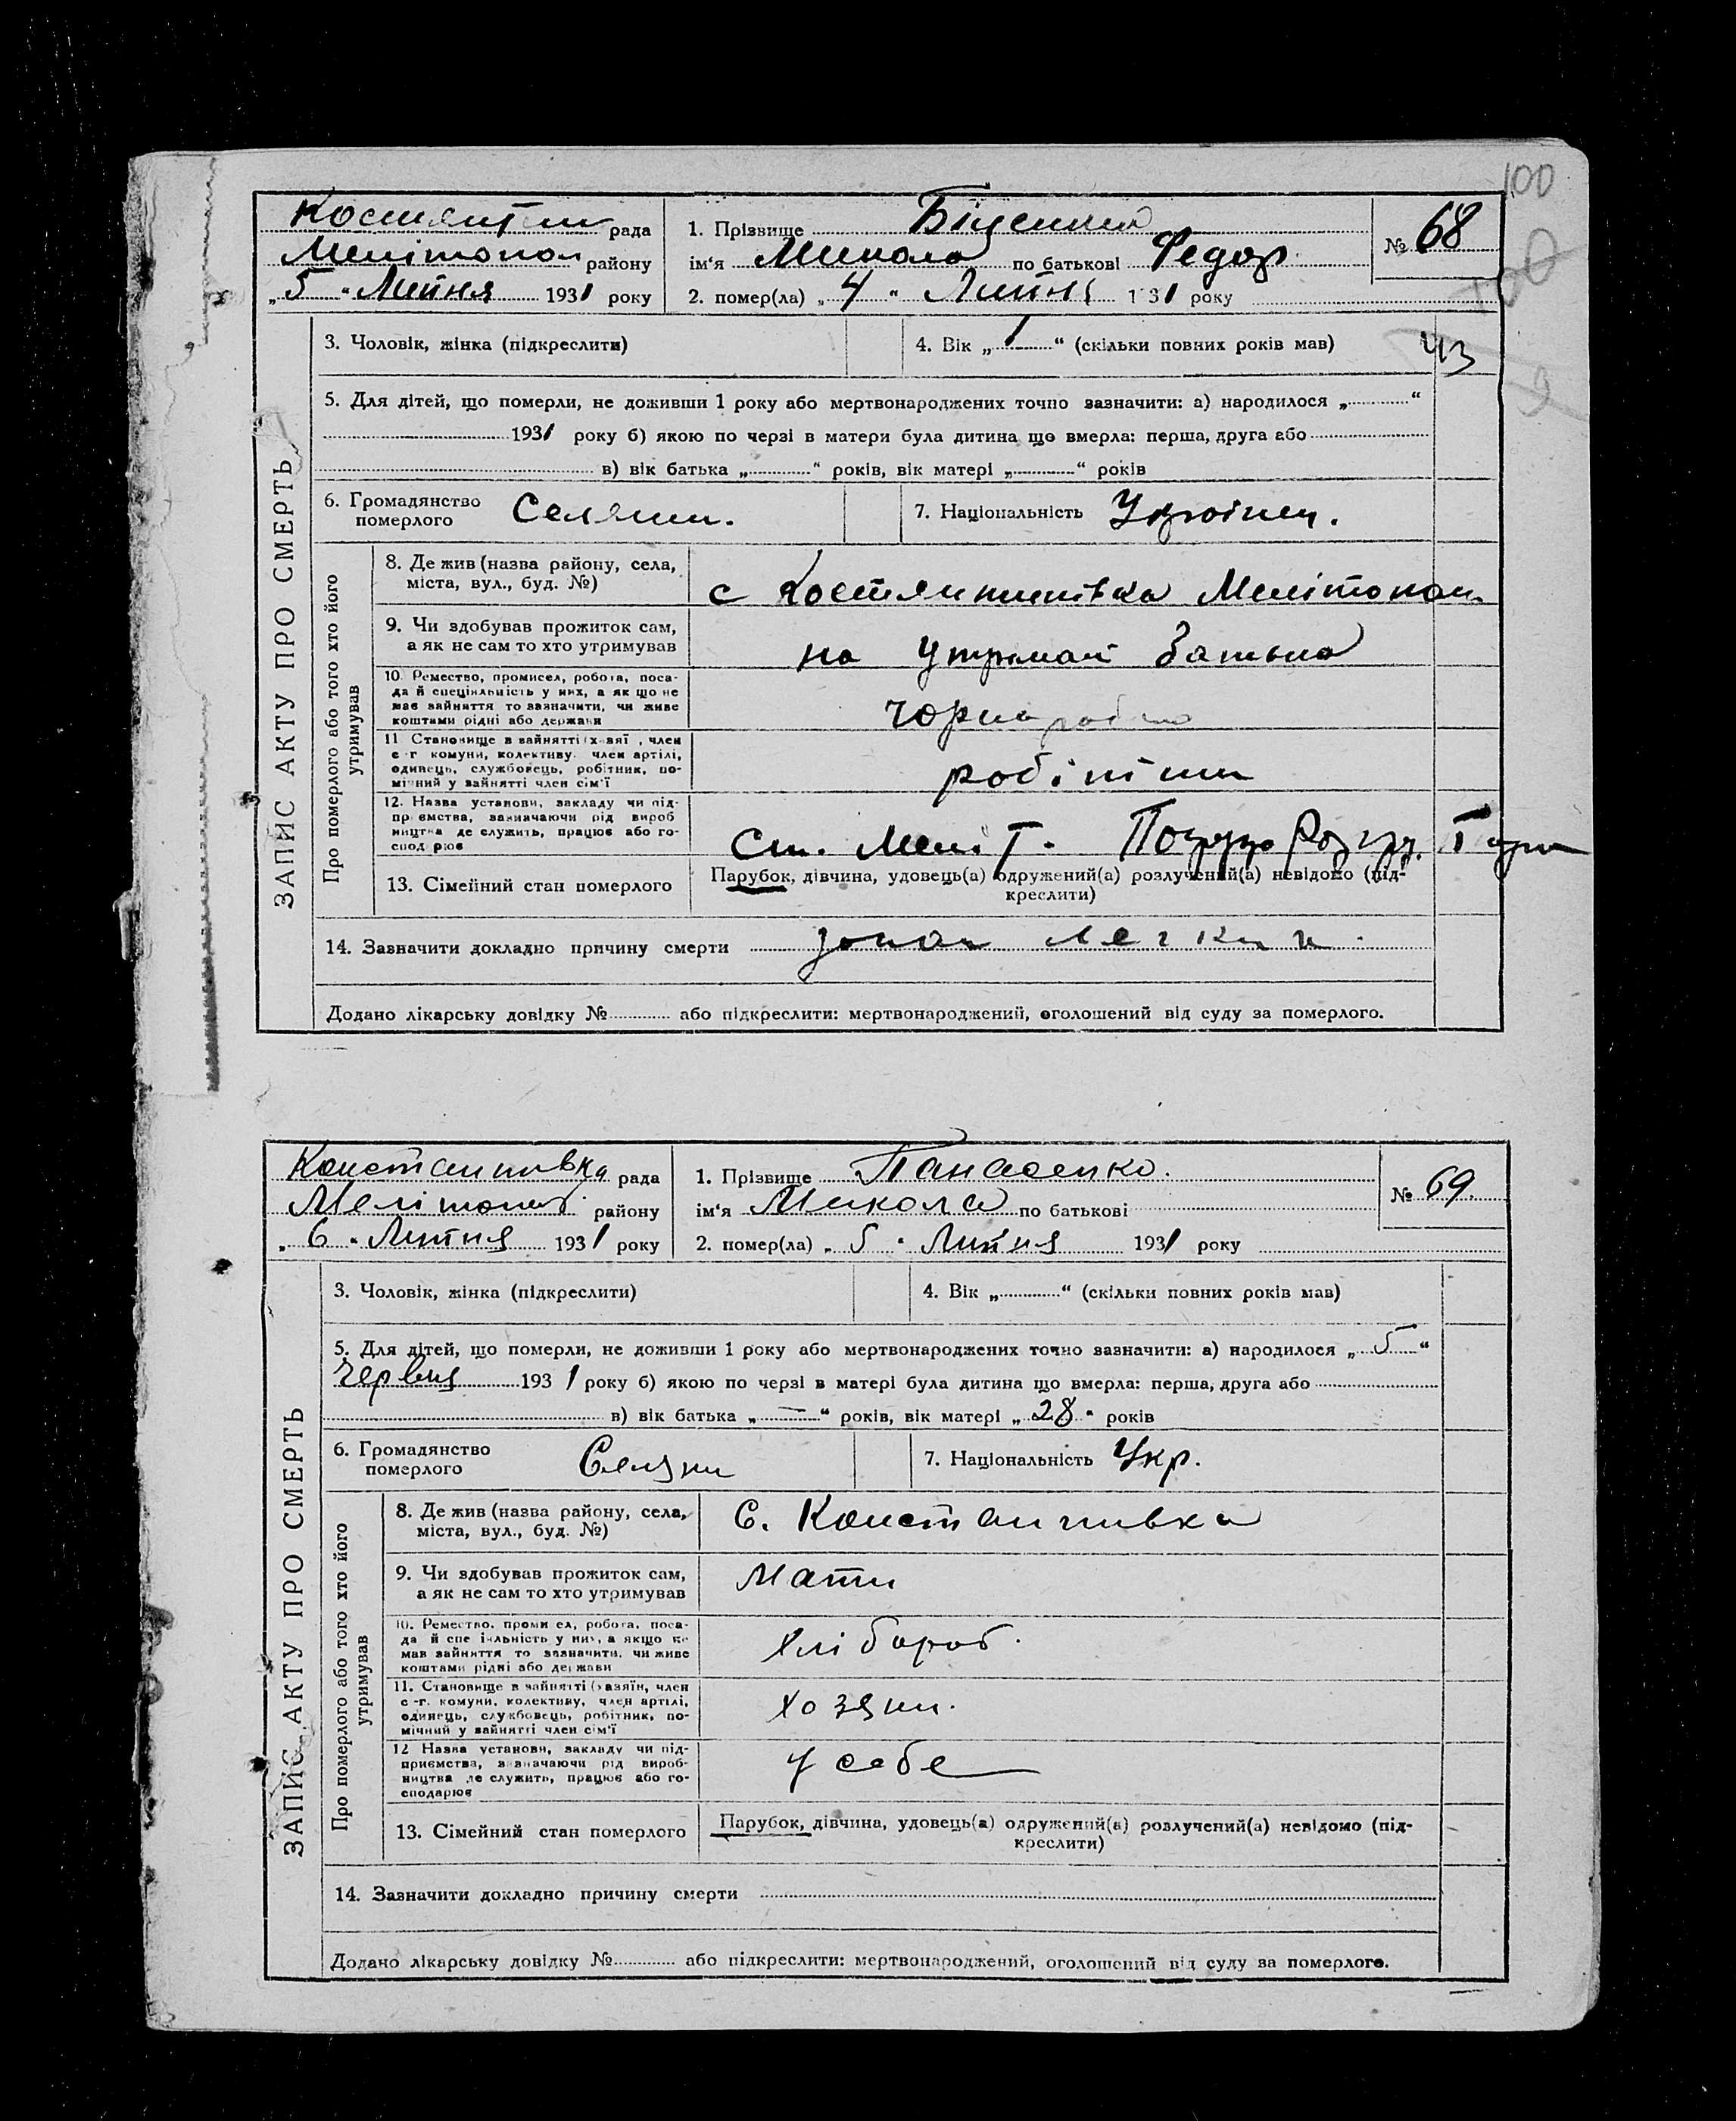 100
Костянтин рада
Мелітопол району
„5“ Липня 1931 року
1. Прізвище
ім‘я Микола по батькові Федор.
2. помер(ла) „4“ Липня 1 31 року
№ 68
ЗАПИС АКТУ ПРО СМЕРТЬ
3. Чоловік, жінка (підкреслити)
4. Вік „1“ (скільки повних років мав)
43
5. Для дітей, що померли, не доживши 1 року або мертвонароджених точно зазначити: а) народилося „ “
1931 року б) якою по черзі в матери була дитина що вмерла: перша, друга або
в) вік батька „ “ років, вік матері „ “ років
6. Громадянство
померлого
Селянин.
7. Національність Україінец.
Про померлого або того хто його
утримував
8. Де жив (назва району, села,
міста, вул., буд. №)
с Костянтинівка Мелітопол.
9. Чи здобував прожиток сам,
а як не сам то хто утримував
на утриман батька
10. Ремество, промисел, робота, поса-
да й спеціяльність у них, а як що не
має зайняття то зазначити, чи живе
коштами рідні або держави
11 Становище в зайнятті (х вяї , член
с -г комуни, колективу. член артілі,
одинець, службовець, робітник, по-
мічний у зайнятті член сім‘ї
робітник
12. Назва установи, закладу чи під-
пр ємства, зазначаючи рід вироб
ництва де служить, працює або го-
спод рює
Ст. Меліт.
13. Сімейний стан померлого
Парубок, дівчина, удовець(а) одружений(а) розлучений(а) невідомо (під-
креслити)
14. Зазначити докладно причину смерти
Додано лікарську довідку № або підкреслити: мертвонароджений, оголошений від суду за померлого.
Константинвка рада
Мелітопол. району
„6“ Липня 1931 року
1. Прізвище Панасенко.
ім‘я Микола по батькові
2. помер(ла) „5“ Липня 1931 року
№ 69.
ЗАПИС АКТУ ПРО СМЕРТЬ
3. Чоловік, жінка (підкреслити)
4. Вік „ “ (скільки повних років мав)
5. Для дітей, що померли, не доживши 1 року або мертвонароджених точно зазначити: а) народилося „5“
Червня 1931 року б) якою по черзі в матері була дитина що вмерла: перша, друга або
в) вік батька „—“ років, вік матері „28“ років
6. Громадянство
померлого
Селянин
7. Національність Укр.
Про померлого або того хто його
утримував
8. Де жив (назва району, села,
міста, вул., буд. №)
С. Константинвка
9. Чи здобував прожиток сам,
а як не сам то хто утримував
Мати
10. Ремество, проми ел, робота, поса-
да й спе іяльність у них, а якщо не
мав зайняття то зазначити, чи живе
коштами рідні або держави
Хлібороб.
11. Становище в зайнятті (хазяїн, член
с -г. комуни, колективу, член артілі,
одинець, службовець, робітник, по-
мічний у зайнятті член сім‘ї
Хозяин.
12 Назва установи, закладу чи під-
приємства, зазначаючи рід вироб-
ництва де служить, працює або го-
сподарює
у себе
13. Сімейний стан померлого
Парубок, дівчина, удовець(а) одружений(а) розлучений(а) невідомо (під-
креслити)
14. Зазначити докладно причину смерти
Додано лікарську довідку № або підкреслити: мертвонароджений, оголошений від суду за померлого.